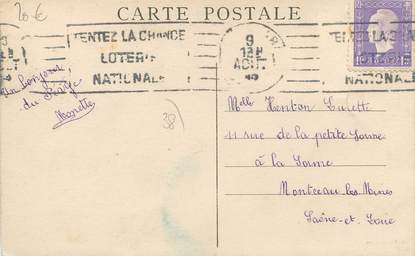 20 €
CARTE POSTALE
TENTEZ LA CHANCE
LOTERIE
NATIONALE
9
AOUT
TENTEZ LA CHANCE
LOTERIE
NATIONALE
Un bonjour
du
Monette
38
Melle Henton Lucette
11 rue de la petite Somme
à la Somme
Montceau les Mines
Saône-et-Loire